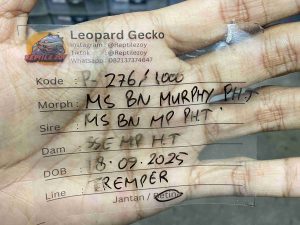 Leopard Gecko
Instagram : @Reptilezoy
Tiktok : @Reptilezoy
Whatsapp : 082137374647
REPTILEZOY
Kode : P 276/1000
Morph : MS BN MURPHY P.H.T
Sire : MS BN MP PH.T
Dam : SSE MP H.T
DOB : 18.09.2025
Line : TREMPER
Jantan / Betina